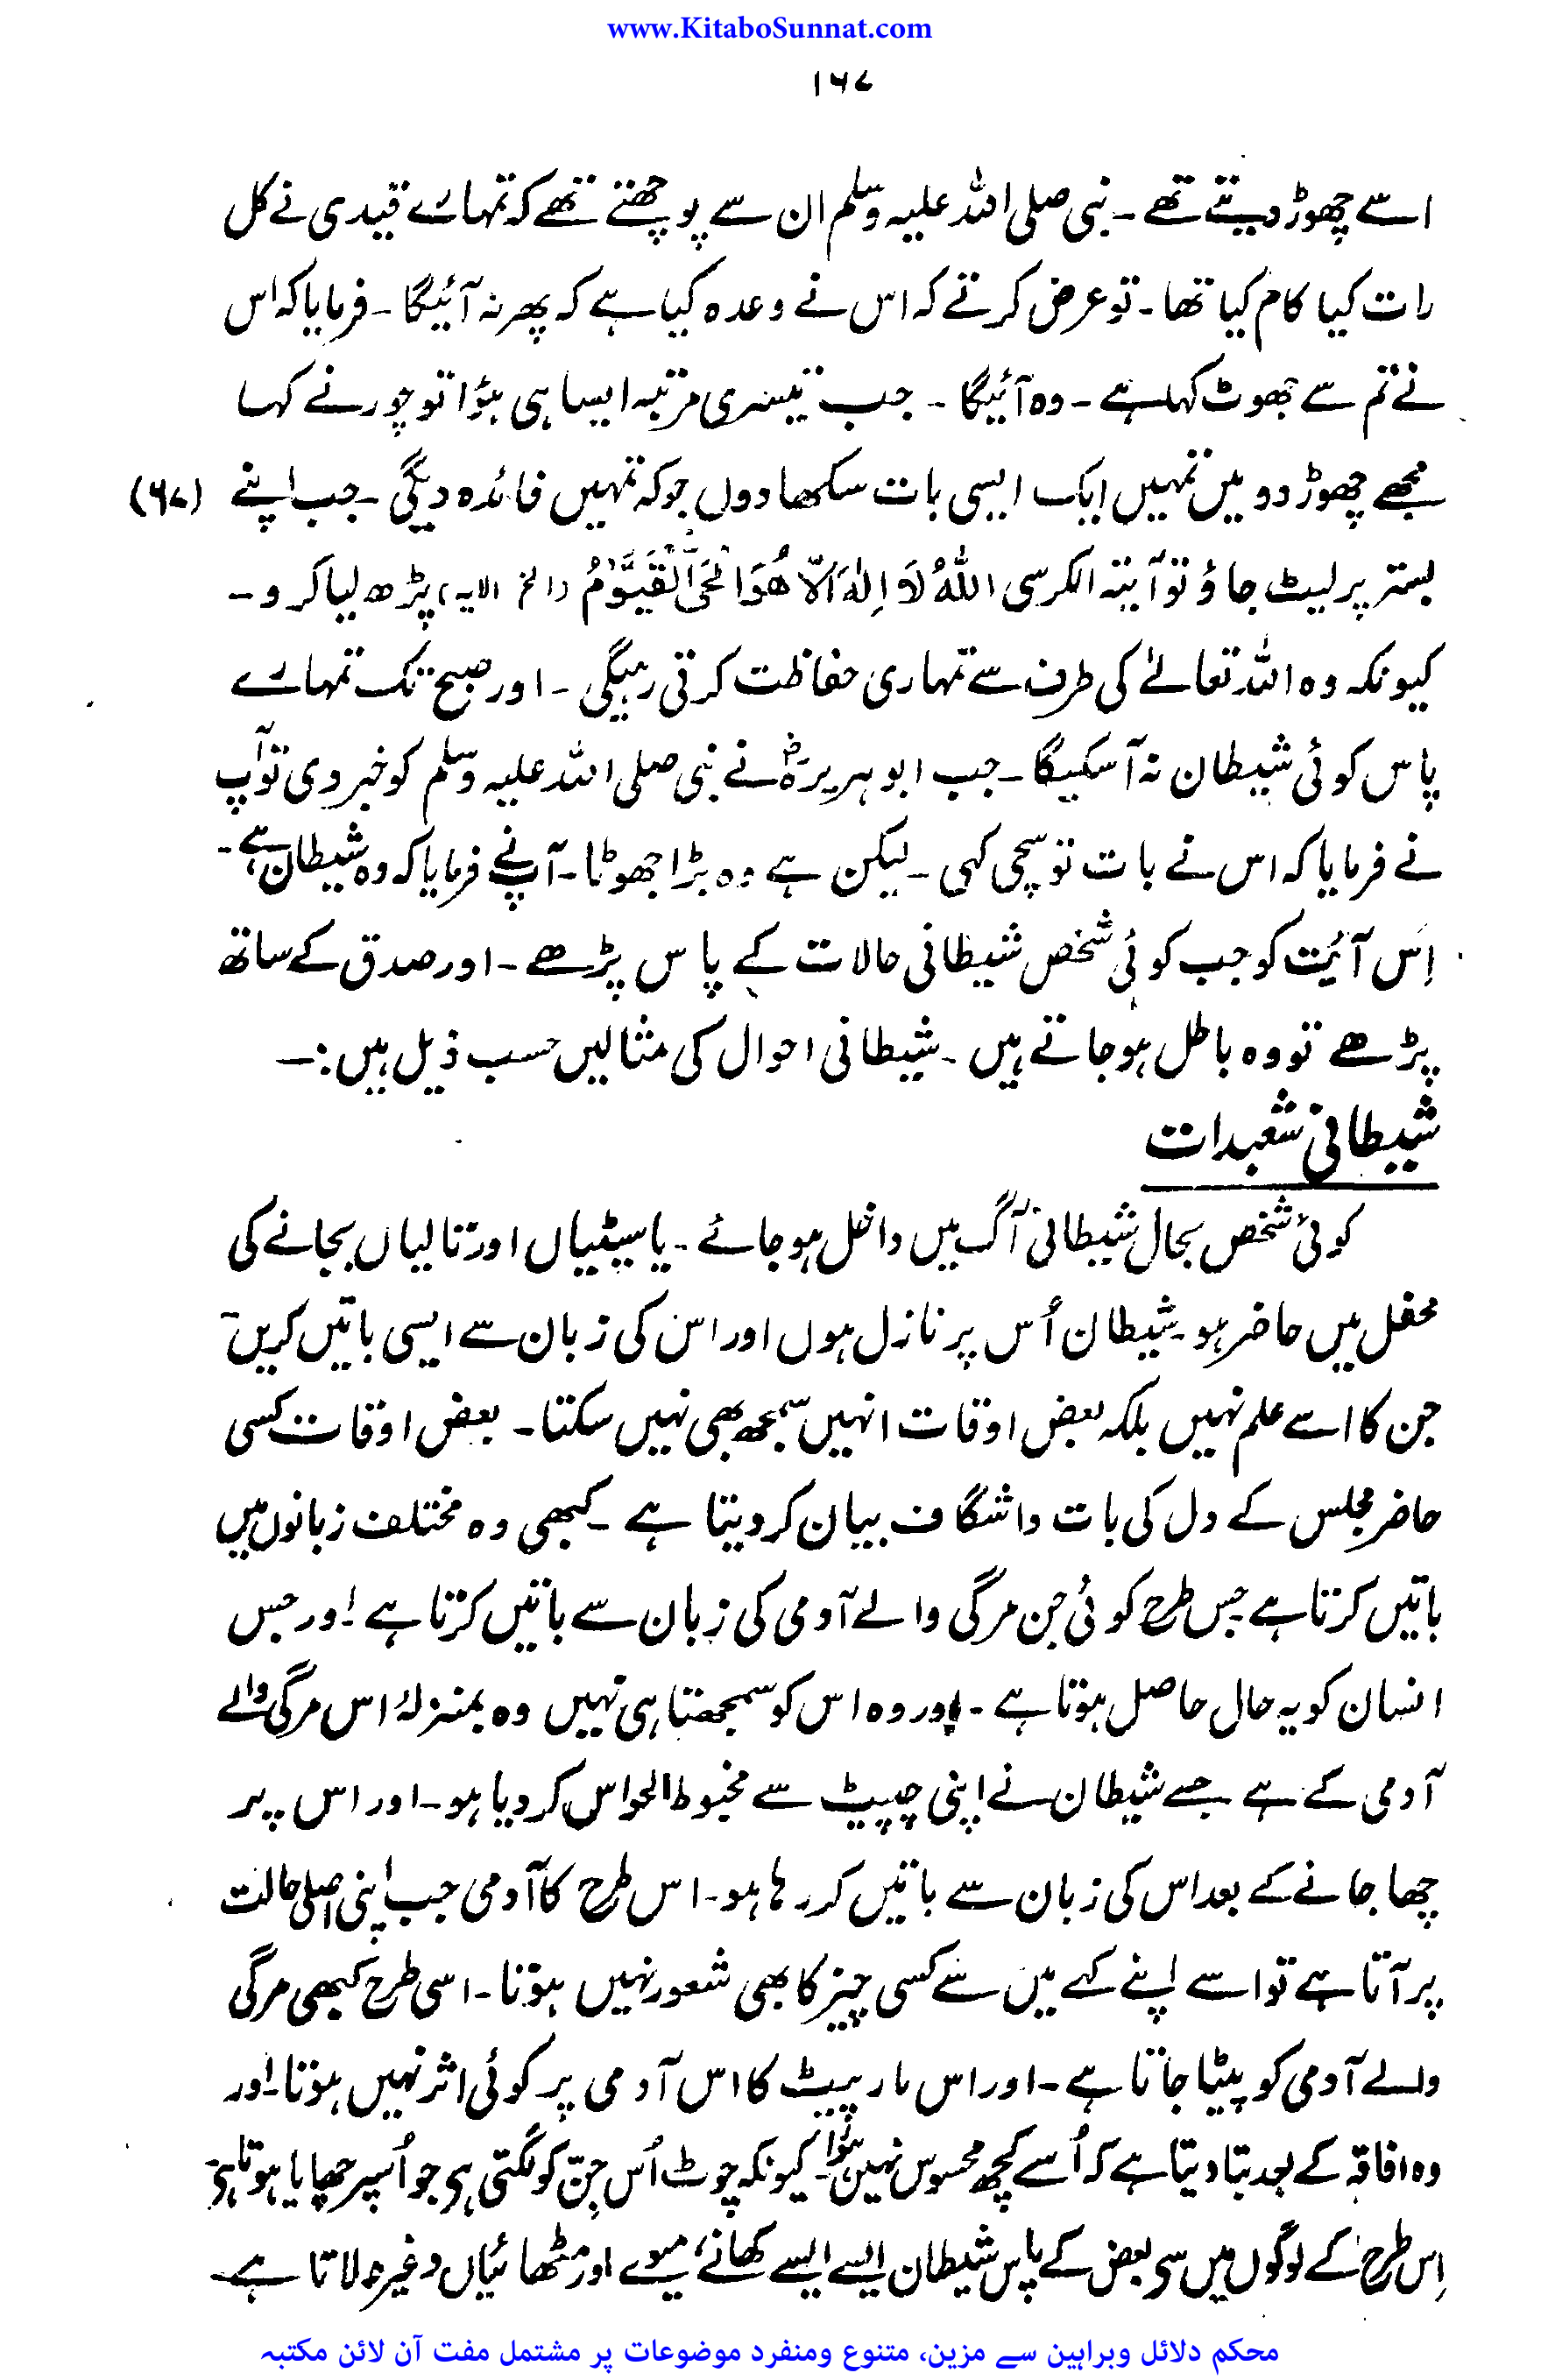 www.KitaboSunnat.com
۱۶۷
اسے چھوڑ دیتے تھے ۔ نبی صلی اللہ علیہ وسلم ان سے پوچھتے تھے کہ تمہارے قیدی نے کل
رات کیا کام کیا تھا ۔ تو عرض کرتے کہ اس نے وعدہ کیا ہے کہ پھر نہ آئیگا ۔ فرمایا کہ اس
نے تم سے جھوٹ کہا ہے ۔ وہ آئیگا ۔ جب تیسری مرتبہ ایسا ہی ہؤا تو چور نے کہا
مجھے چھوڑ دو میں تمہیں ایک ایسی بات سکھا دوں جو کہ تمہیں فائدہ دیگی ۔ جب اپنے (۶۷)
بستر پر لیٹ جاؤ تو آیتہ الکرسی اَللهُ لَا اِلٰهَ اِلَّا هُوَ الْحَيُّ الْقَيُّوْمُ (الخ الایہ) پڑھ لیا کرو ۔
کیونکہ وہ اللہ تعالےٰ کی طرف سے تمہاری حفاظت کرتی رہیگی ۔ اور صبح تک تمہارے
پاس کوئی شیطان نہ آسکیگا ۔ جب ابوہریرہؓ نے نبی صلی اللہ علیہ وسلم کو خبر دی تو آپ
نے فرمایا کہ اس نے بات تو سچی کہی ۔ لیکن ہے وہ بڑا جھوٹا ۔ آپ نے فرمایا کہ وہ شیطان ہے ۔
اِس آئیت کو جب کوئی شخص شیطانی حالات کے پاس پڑھے ۔ اور صدق کے ساتھ
پڑھے تو وہ باطل ہو جاتے ہیں ۔ شیطانی احوال کی مثالیں حسب ذیل ہیں :۔
شیطانی شعبدات
کوئی شخص بحال شیطانی آگ میں داخل ہو جائے ۔ یا سیٹیاں اور تالیاں بجانے کی
محفل میں حاضر ہو ۔ شیطان اُس پر نازل ہوں اور اس کی زبان سے ایسی باتیں کریں
جن کا اسے علم نہیں بلکہ بعض اوقات انہیں سمجھ بھی نہیں سکتا ۔ بعض اوقات کسی
حاضر مجلس کے دل کی بات واشگاف بیان کر دیتا ہے ۔ کبھی وہ مختلف زبانوں میں
باتیں کرتا ہے جس طرح کوئی جن مرگی والے آدمی کی زبان سے باتیں کرتا ہے اور جس
انسان کو یہ حال حاصل ہوتا ہے ۔ اور وہ اس کو سمجھتا ہی نہیں وہ بمنزلۂ اس مرگی والے
آدمی کے ہے جسے شیطان نے اپنی چپیٹ سے مخبوط الحواس کر دیا ہو ۔ اور اس پر
چھا جانے کے بعد اس کی زبان سے باتیں کر رہا ہو ۔ اس طرح کا آدمی جب اپنی اصلی حالت
پر آتا ہے تو اسے اپنے کہے میں سے کسی چیز کا بھی شعور نہیں ہوتا ۔ اسی طرح کبھی مرگی
والے آدمی کو پیٹا جاتا ہے ۔ اور اس مار پیٹ کا اس آدمی پر کوئی اثر نہیں ہوتا ۔ اور
وہ افاقہ کے بعد بتا دیتا ہے کہ اُسے کچھ محسوس نہیں ہؤا ۔ کیونکہ چوٹ اُس جِنّ کو لگتی ہی جو اُسپر چھایا ہوتا ہی ۔
اِس طرح کے لوگوں میں سی بعض کے پاس شیطان ایسے ایسے کھانے، میوے اور مٹھائیاں وغیرہ لاتا ہے
محکم دلائل وبراہین سے مزین، متنوع ومنفرد موضوعات پر مشتمل مفت آن لائن مکتبہ